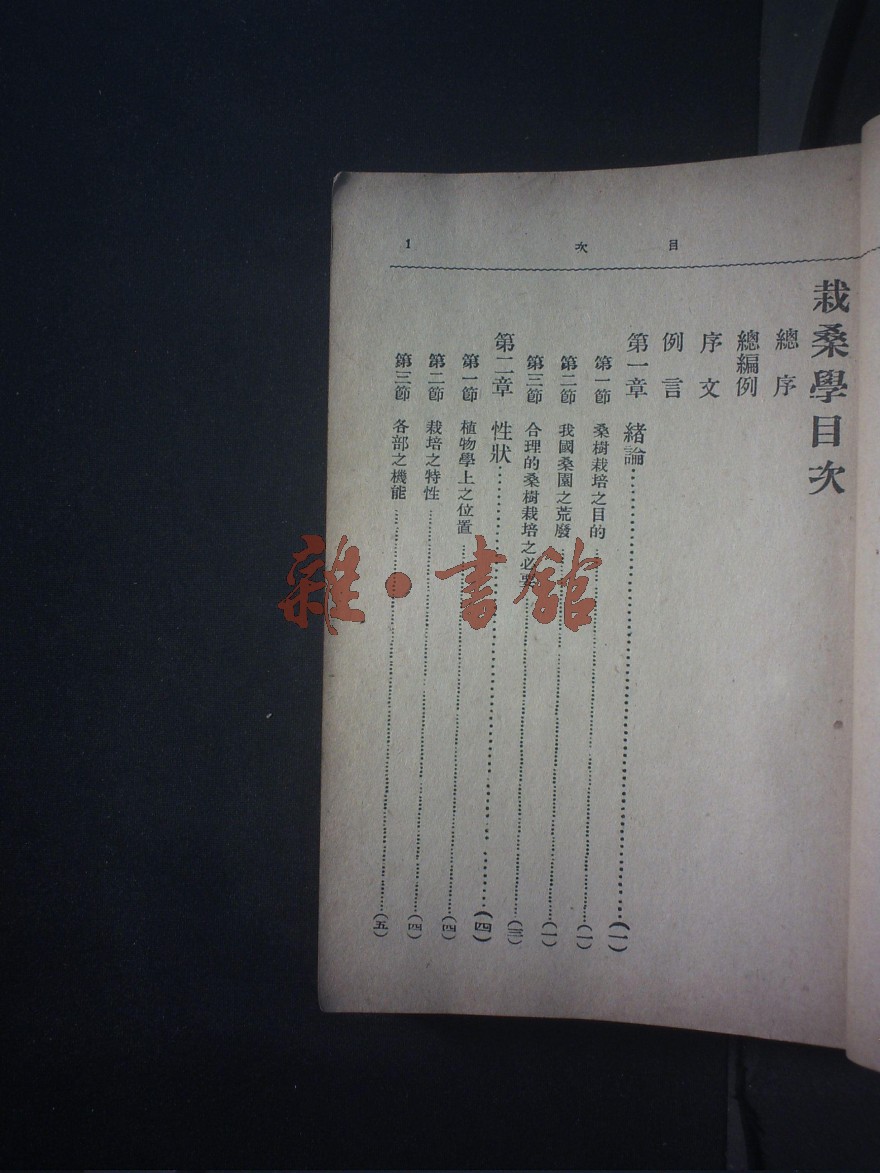 目次
1
栽桑學目次
總序
總編例
序文
例言
第一章 緒論……(一)
第一節 桑樹栽培之目的……(一)
第二節 我國桑園之荒廢……(一)
第三節 合理的桑樹栽培之必要……(三)
第二章 性狀……(四)
第一節 植物學上之位置……(四)
第二節 栽培之特性……(四)
第三節 各部之機能……(五)
雜·書館